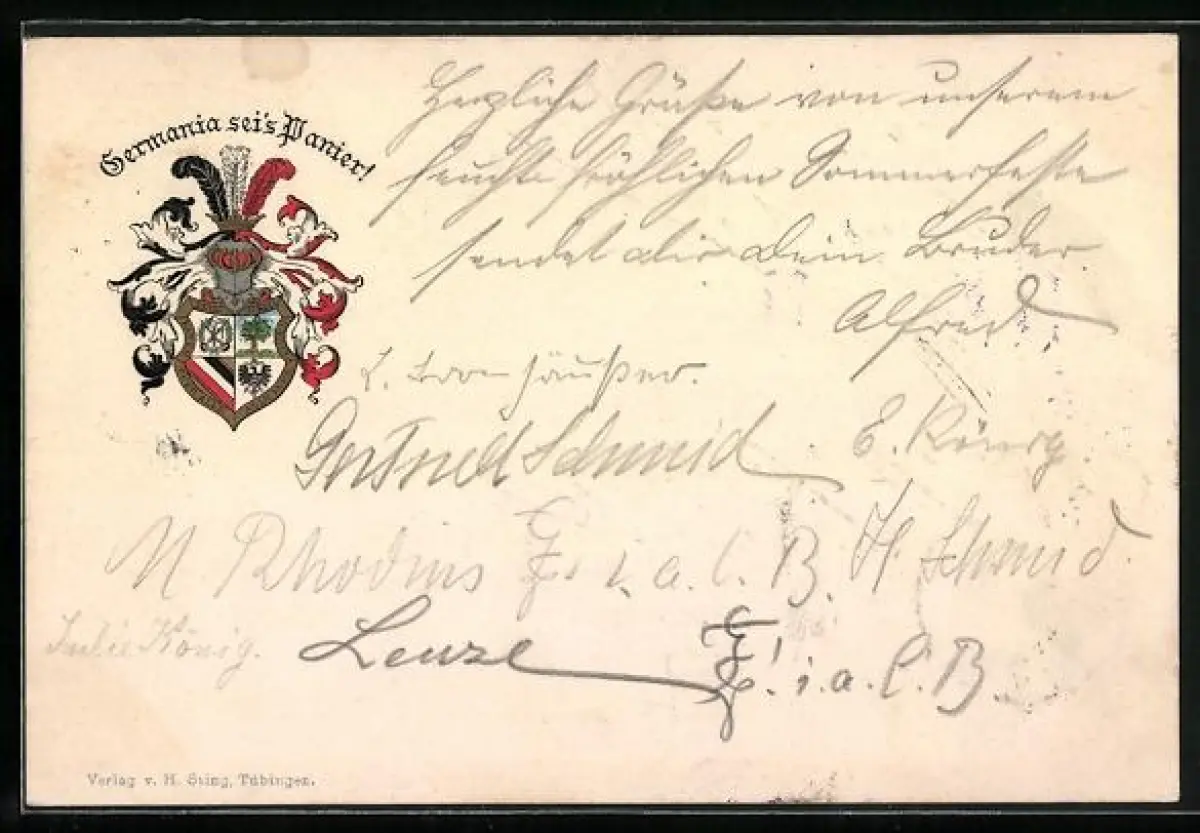 Germania sei's Panier!
Herzliche Grüße von unserem
feucht fröhlichen Sommerfeste
sendet dir dein Bruder
Alfred
L.
Gertrud Schmid
E. König.
M Rhodius i. a. C. B.
H. Schmid.
Julie König.
Leuze ! i. a. C. B.
Verlag v. H. Sting, Tübingen.